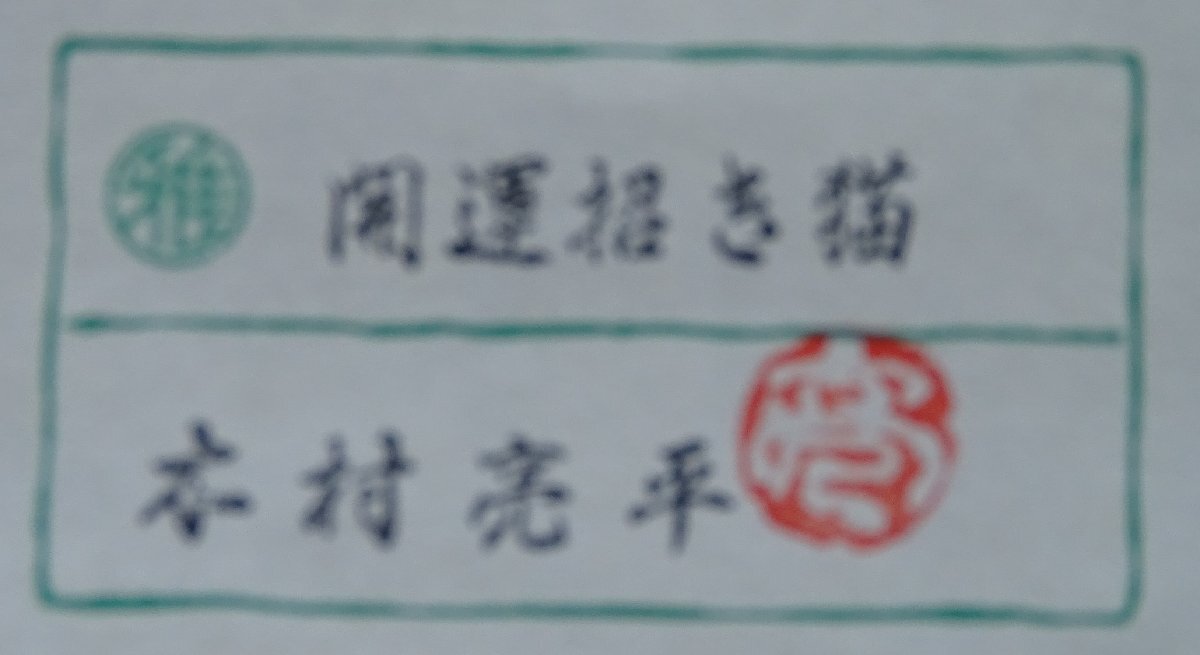 開運招き猫
木村亮平